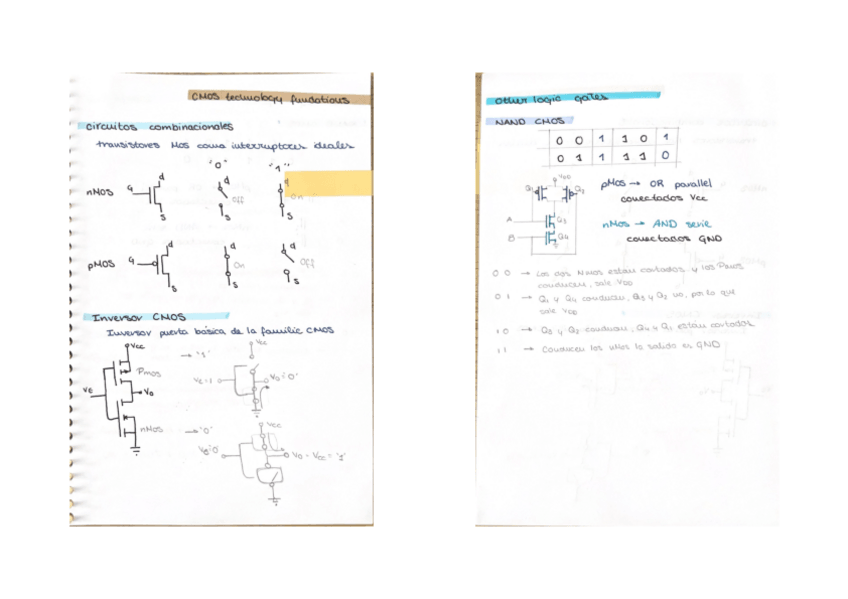 CMOS technology fundations
circuitos combinacionales
transistores MOS como interruptores ideales
"0" "1"
nMOS G d s d Off s d On s
pMOS G d s d On s d Off s
Inversor CMOS
Inversor puerta básica de la familie CMOS
Vcc → "1" Vcc
PMOS
Ve=1 Vo="0"
Ve Vo
nMOS → "0"
Vcc
Vo = Vcc = "1"
other logic gates
NAND CMOS
0 0 1 1 0 1
0 1 1 1 1 0
VDD
Q1 Q2
pMOS → OR parallel
conectados Vcc
A Q3
nMos → AND serie
B Q4
conectados GND
0 0 → Los dos Nmos estan cortados y los Pmos
conducen, sale VDD
0 1 → Q1 y Q4 conducen, Q3 y Q2 no, por lo que
sale VDD
1 0 → Q3 y Q2 conducen, Q4 y Q1 están cortados
1 1 → Conducen los nMos la salida es GND